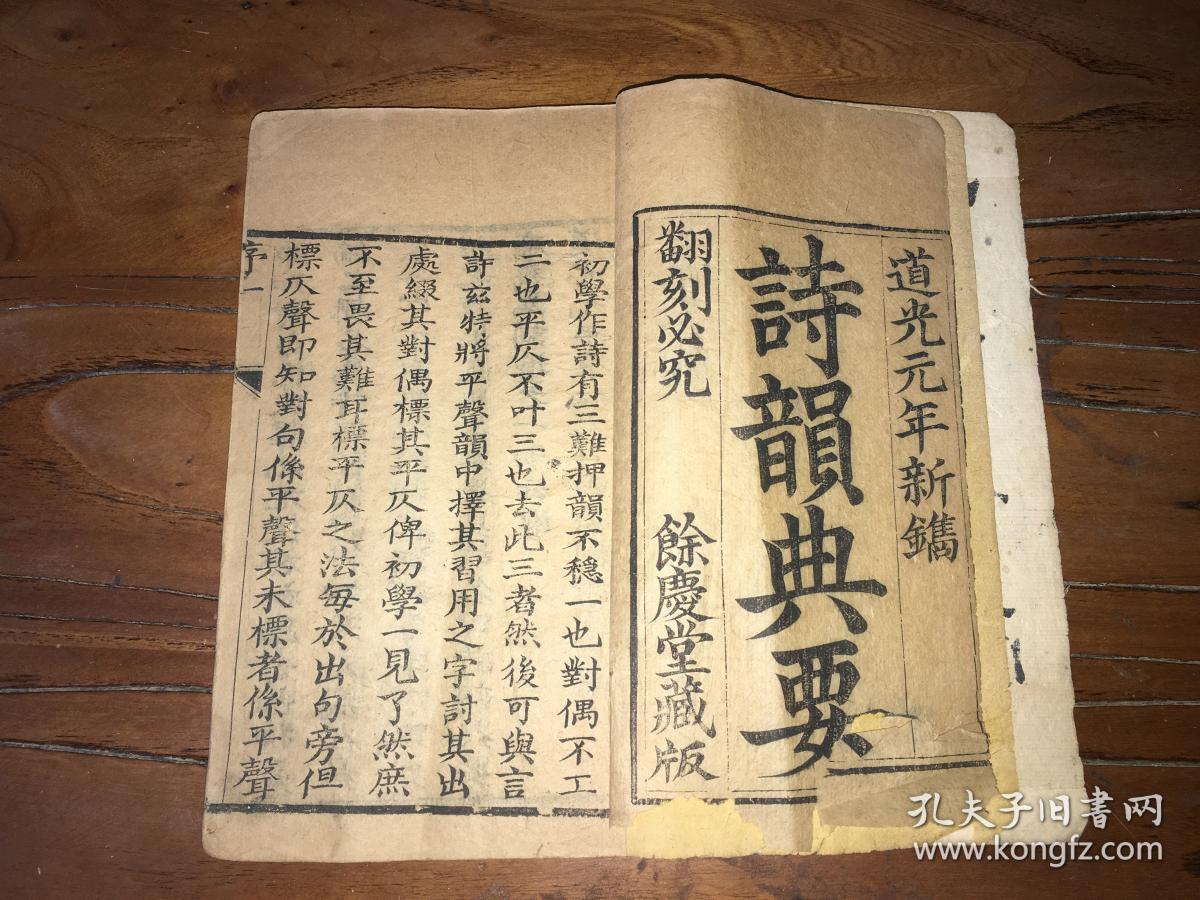 道光元年新鐫
詩韻典要
翻刻必究
餘慶堂藏版
初學作詩有三難押韻不穩一也對偶不工
二也平仄不叶三也去此三者然後可與言
詩玆特將平聲韻中擇其習用之字討其出
處綴其對偶標其平仄俾初學一見了然庶
不至畏其難耳標平仄之法每於出句旁但
標仄聲即知對句係平聲其未標者係平聲
序一
孔夫子旧书网
www.kongfz.com